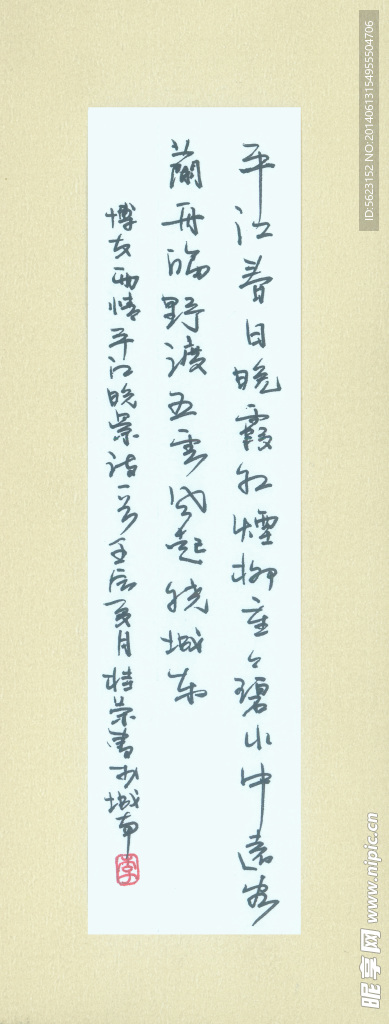 平江春日晚霞红烟柳重々碧水中远客
兰舟临野渡五云风起绕城东
博友雨情平江晚景诗一首壬辰夏月桂荣书于城南
李
ID:5623152 NO:20140613154955504706
昵享网 www.nipic.cn